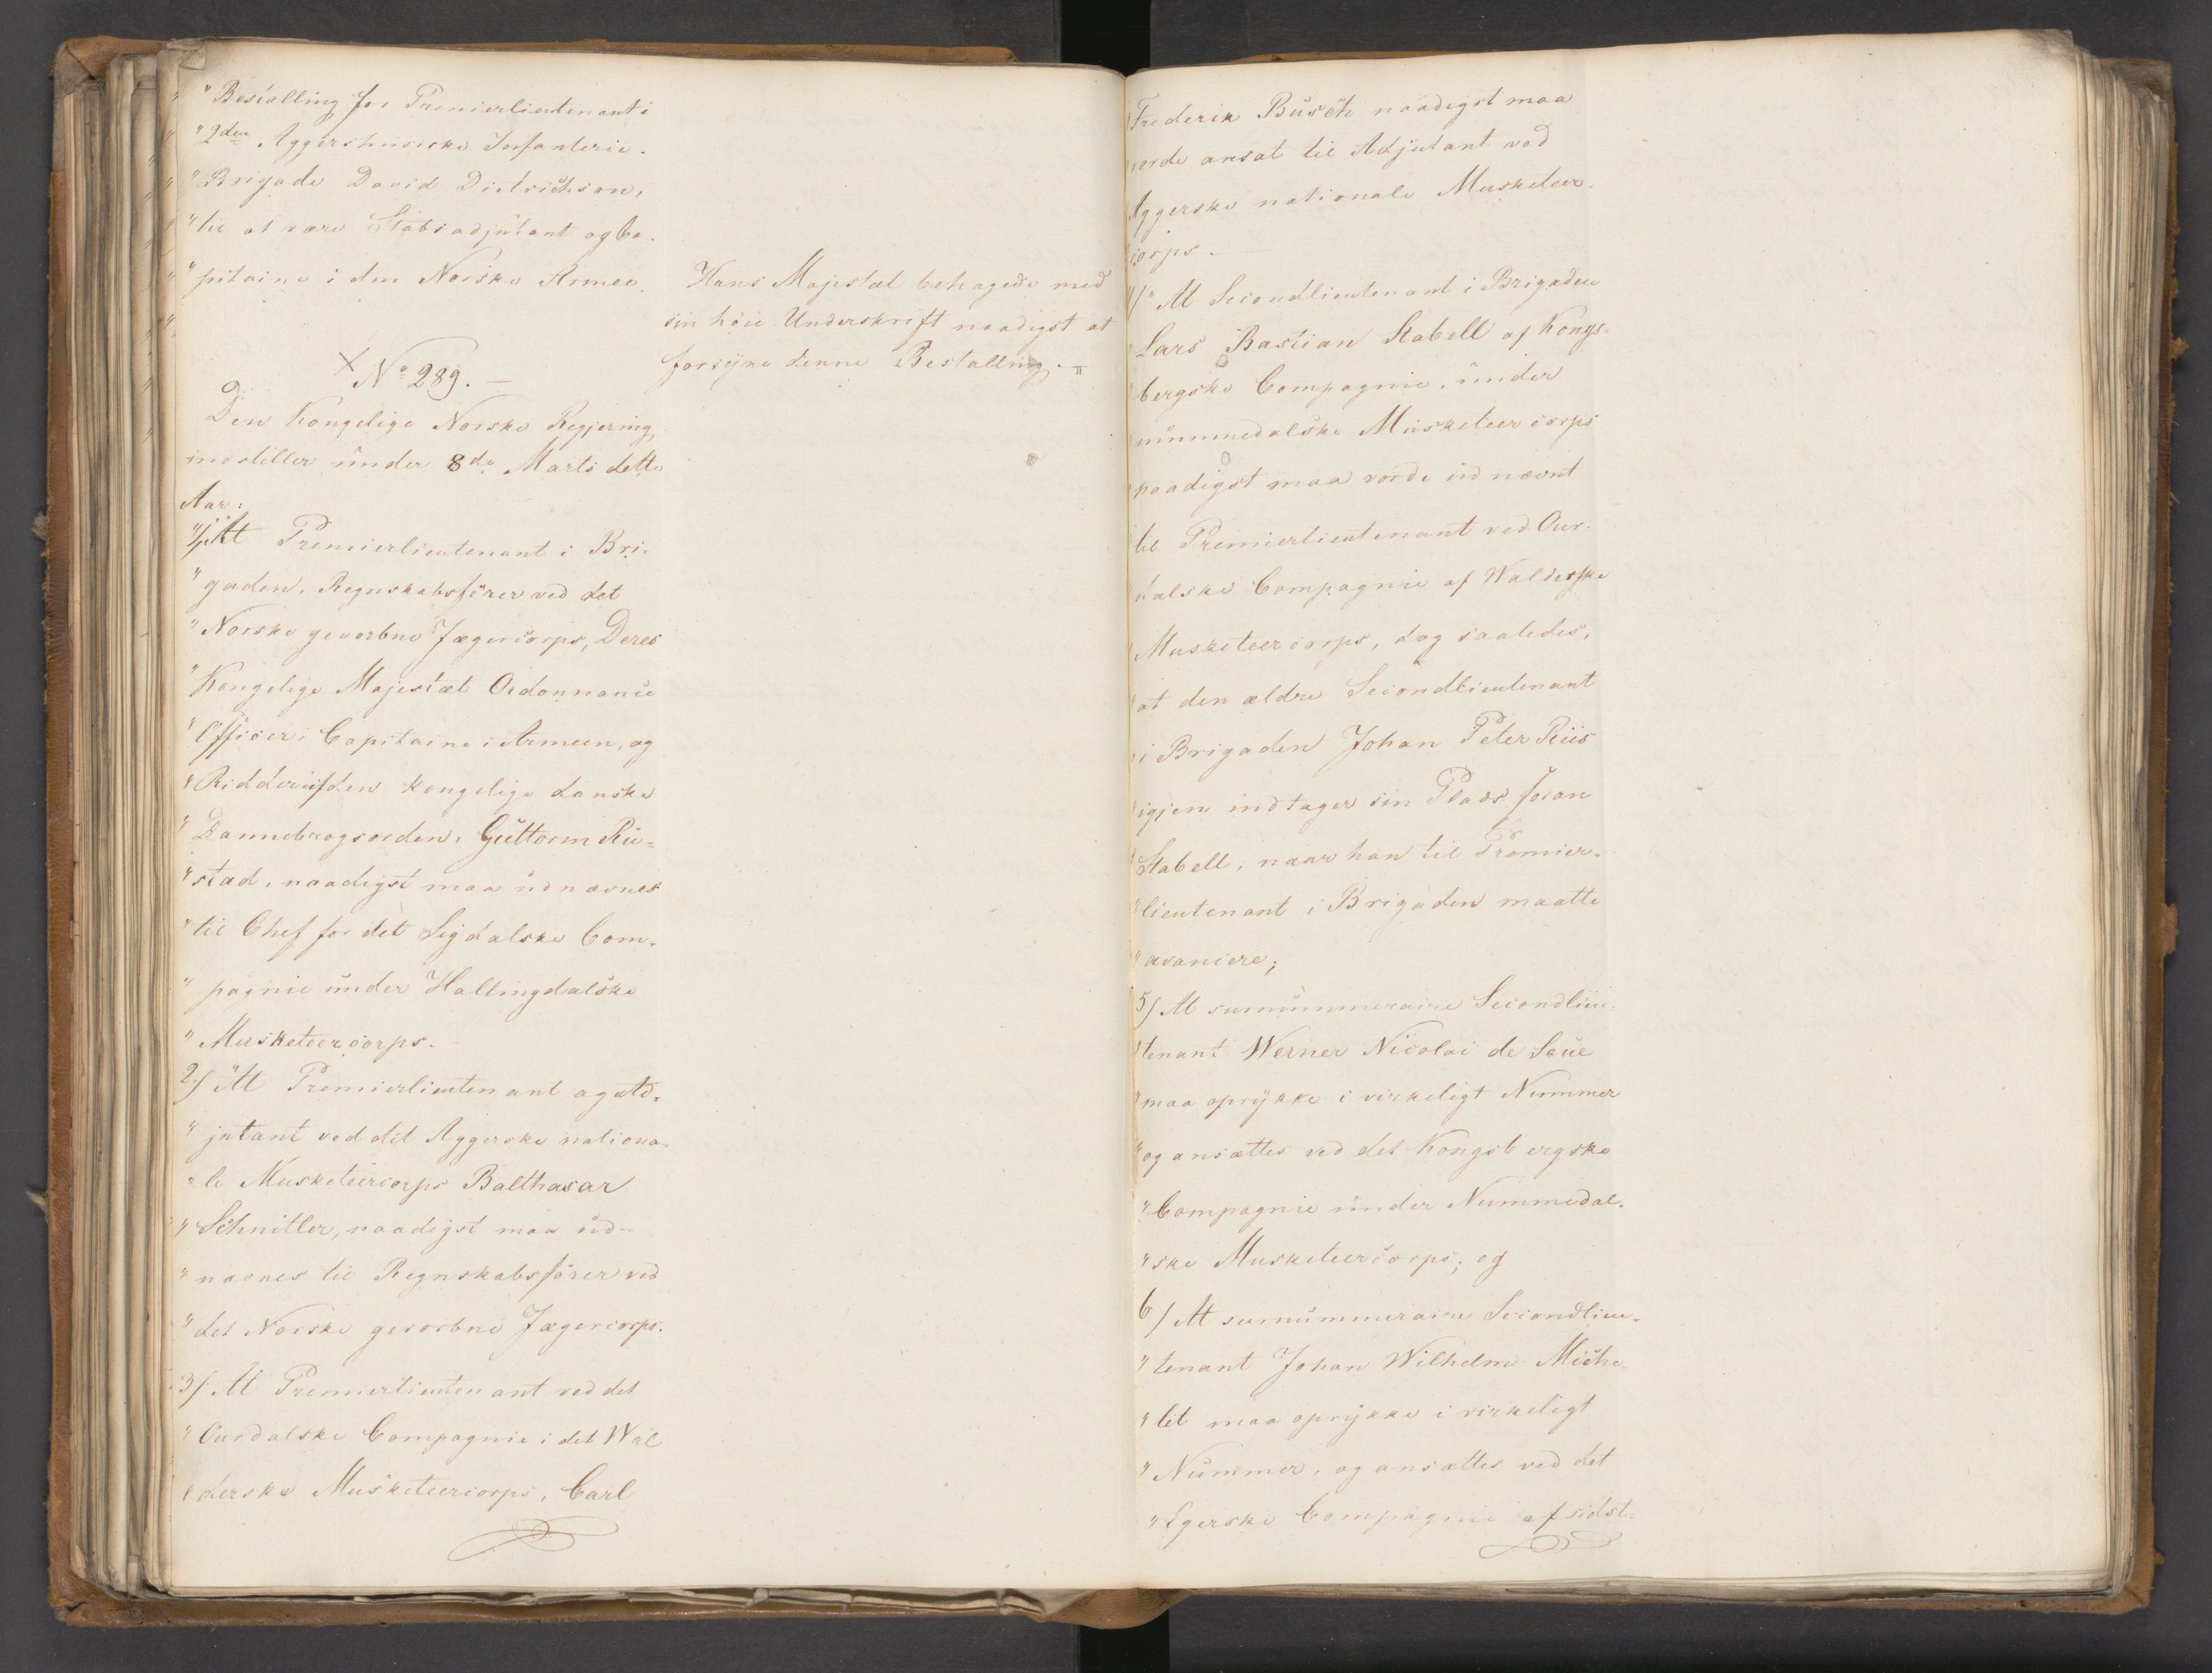 "Bestalling for Premierlieutenant i
"2den Aggershusiske Infanterie-
"Brigade David Dietrichson,
"til at være Stabsadjutant og Ca-
"pitaine i den Norske Armee.
Hans Majestæt behagede med
sin höie Underskrift naadigst at
forsÿne denne Bestalling. -
+ No 289. -
Den Kongelige Norske Regjering
indstiller under 8de Marts dette
Aar:
1/ "At Premierlieutenant i Bri-
"gaden, Regnskabsförer ved det
"Norske gevorbne Jægercorps, Deres
"Kongelige Majestæt Ordonnance
"Officer, Capitaine i Armeen, og
"Ridder af den kongelige danske
"Dannebrogsorden, Guttorm Ru-
"stad, naadigst maa udnævnes
"til Chef for det Sigdalske Com-
"pagnie under Hallingdalske
"Musketeercorps.
2/ "At Premierlieutenant og Ad-
"jutant ved det Aggerske nationa-
"le Musketeercorps Balthasar
"Schnitler, naadigst maa ud-
"nævnes til Regnskabsförer ved
"det Norske gevorbne Jægercorps.
3/ At Premierlieutenant ved det
"Ourdalske Compagnie i det Wal
"derske Musketeercorps, Carl
"Frederik Busch naadigst maa
"vorde ansat til Adjutant ved
"Aggerske nationale Musketeer-
"corps. -
4/ "At Secondlieutenant i Brigaden
"Lars Bastian Stabell af Kongs-
"bergske Compagnie, under
"nummedalske Musketeercorps
"naadigst maa vorde udnævnt
"til Premierlieutenant ved Our-
"dalske Compagnie af Walderske
"Musketeercorps, dog saaledes,
"at den ældre Secondlieutenant
"i Brigaden Johan Peter Riis
"igjen indtager sin Plads foran
"Stabell, naar han til Premier-
"lieutenant i Brigaden maatte
"avancere;
5/ At surnummeraire Secondlieu-
"tenant Werner Nicolai de Seue
"maa oprÿkke i virkeligt Nummer
"og ansættes ved det Kongsbergske
"Compagnie under Nummedal-
"ske Musketeercorps; og
6/ At surnummeraire Secondlieu-
"tenant Johan Wilhelm Miche-
"let maa oprÿkke i virkeligt
"Nummer, og ansættes ved det
"Egerske Compagnie af sidst-